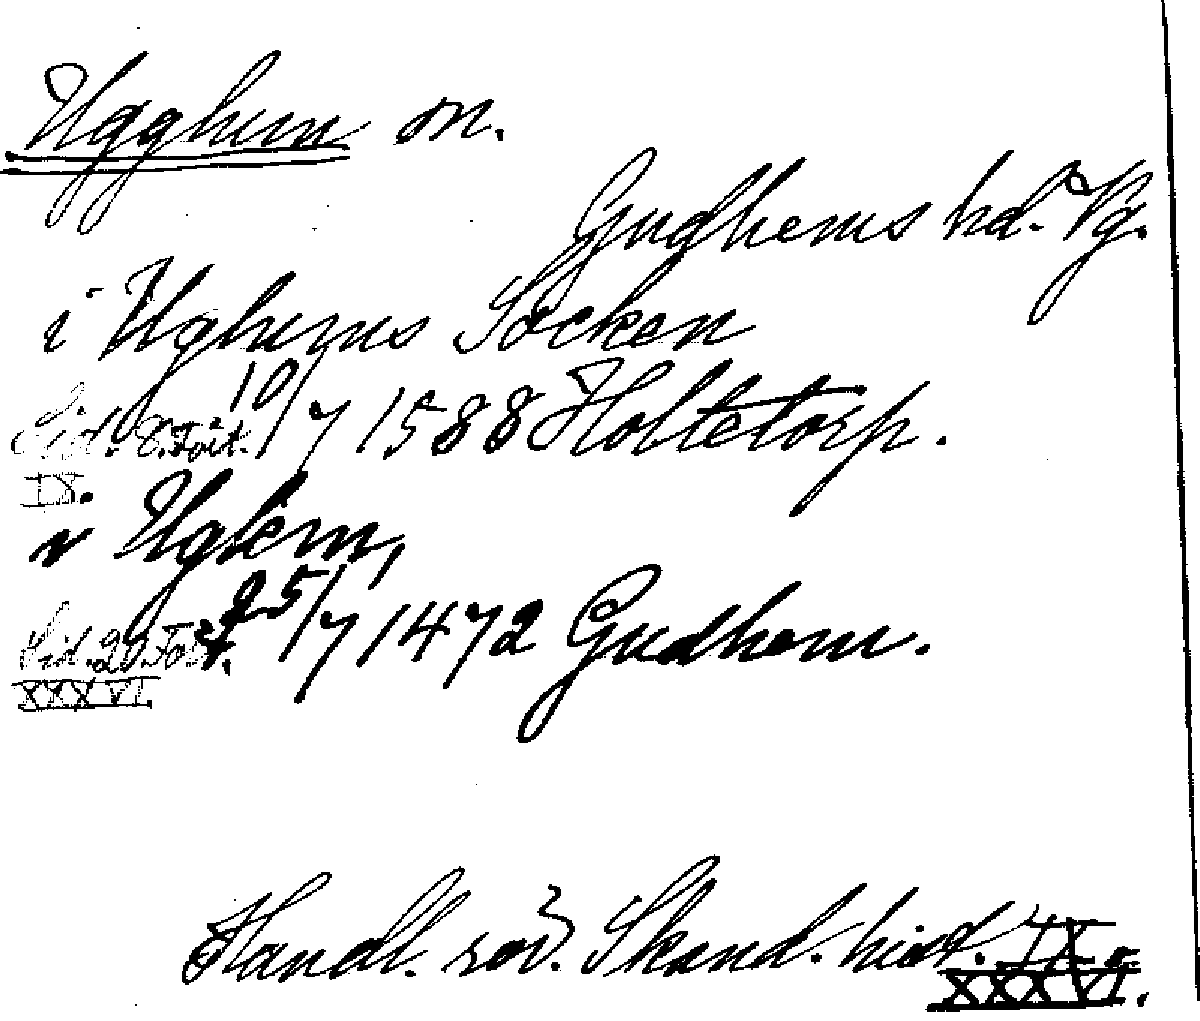 Ugglum sn.
Gudhems hd. Vg.
i Uglums Socken
Sid. 8. Fört. 10/7 1588 Holtetorp.
IX.
v Uglem,
Sid. 29. Fört. 25/7 1472 Gudhem.
XXXVI.
Handl. rör. Skand. hist. IX o
XXXVI.